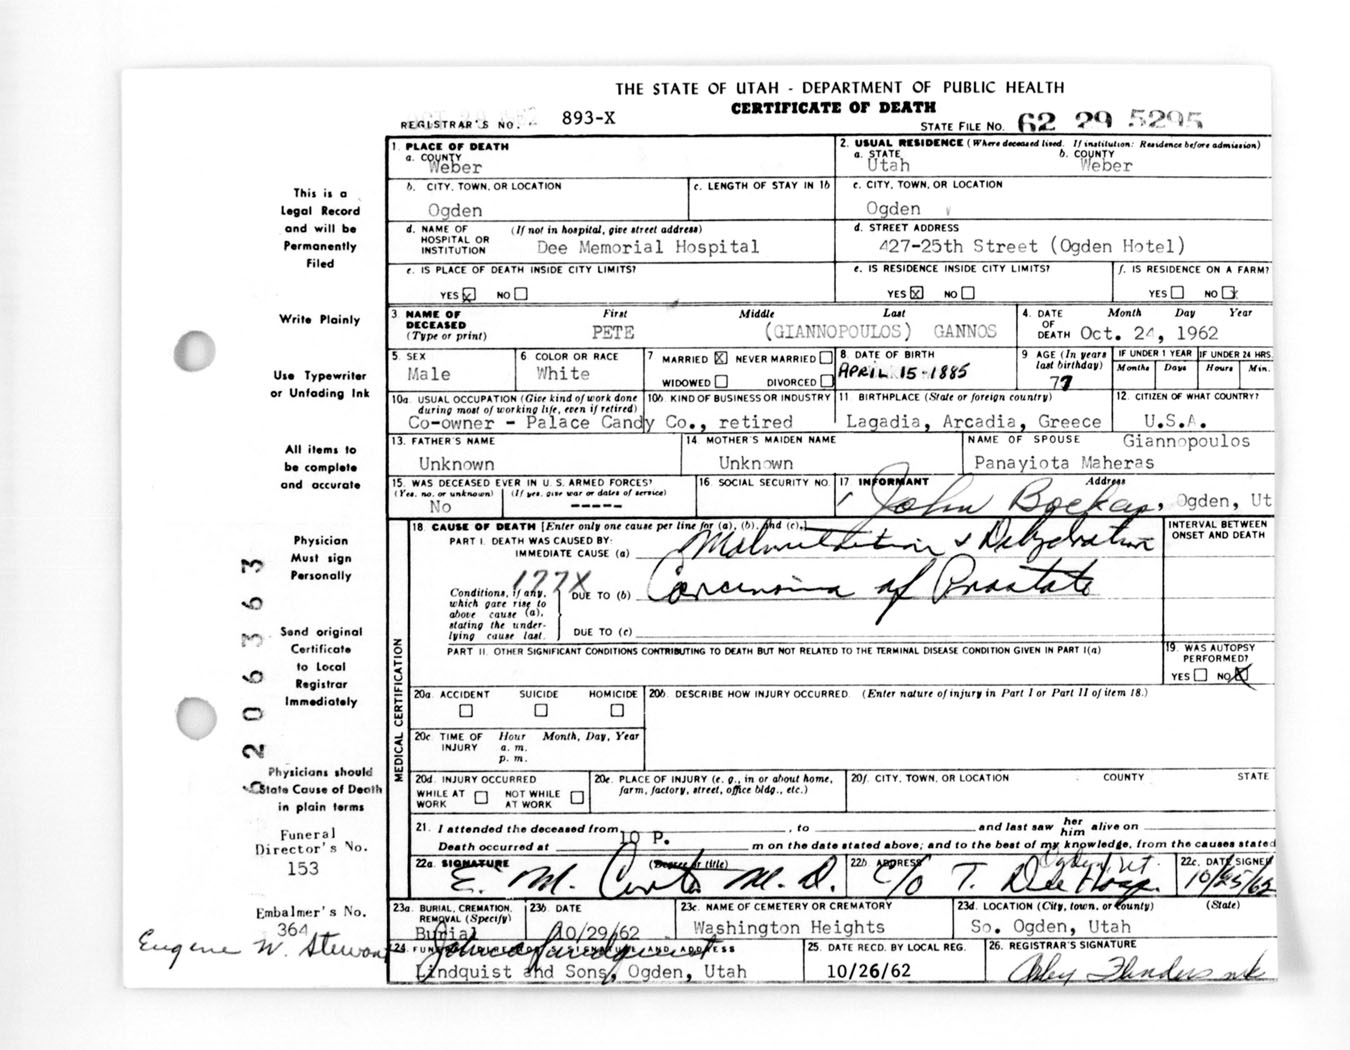 THE STATE OF UTAH - DEPARTMENT OF PUBLIC HEALTH
CERTIFICATE OF DEATH
REGISTRAR'S NO. 893-X
STATE FILE NO. 62 29 5295
This is a
Legal Record
and will be
Permanently
Filed
Write Plainly
Use Typewriter
or Unfading Ink
All items to
be complete
and accurate
Physician
Must sign
Personally
Send original
Certificate
to Local
Registrar
Immediately
Physicians should
State Cause of Death
in plain terms
Funeral
Director's No.
153
Embalmer's No.
364
Eugene W. Stewart
1. PLACE OF DEATH
a. COUNTY
Weber
2. USUAL RESIDENCE (Where deceased lived. If institution: Residence before admission)
a. STATE b. COUNTY
Utah Weber
b. CITY, TOWN, OR LOCATION
Ogden
c. LENGTH OF STAY IN 1b
c. CITY, TOWN, OR LOCATION
Ogden
d. NAME OF (If not in hospital, give street address)
HOSPITAL OR
INSTITUTION Dee Memorial Hospital
d. STREET ADDRESS
427-25th Street (Ogden Hotel)
e. IS PLACE OF DEATH INSIDE CITY LIMITS?
YES X NO
e. IS RESIDENCE INSIDE CITY LIMITS?
YES X NO
f. IS RESIDENCE ON A FARM?
YES NO X
3. NAME OF DECEASED (Type or print)
First Middle Last
PETE (GIANNOPOULOS) GANNOS
4. DATE OF DEATH Month Day Year
Oct. 24, 1962
5. SEX
Male
6 COLOR OR RACE
White
7 MARRIED X NEVER MARRIED
WIDOWED DIVORCED
8. DATE OF BIRTH
APRIL 15-1885
9 AGE (In years last birthday)
77
IF UNDER 1 YEAR IF UNDER 24 HRS.
Months Days Hours Min.
10a. USUAL OCCUPATION (Give kind of work done
during most of working life, even if retired)
10b. KIND OF BUSINESS OR INDUSTRY
Co-owner - Palace Candy Co., retired
11 BIRTHPLACE (State or foreign country)
Lagadia, Arcadia, Greece
12. CITIZEN OF WHAT COUNTRY?
U.S.A.
13. FATHER'S NAME
Unknown
14 MOTHER'S MAIDEN NAME
Unknown
NAME OF SPOUSE Giannopoulos
Panayiota Maheras
15. WAS DECEASED EVER IN U. S. ARMED FORCES?
(Yes, no, or unknown) (If yes, give war or dates of service)
No -----
16. SOCIAL SECURITY NO.
17 INFORMANT Address
John Bockas, Ogden, Ut
18. CAUSE OF DEATH [Enter only one cause per line for (a), (b), and (c).]
INTERVAL BETWEEN
ONSET AND DEATH
PART I. DEATH WAS CAUSED BY:
IMMEDIATE CAUSE (a) Malnutrition & Dehydration
177X
Conditions, if any,
which gave rise to
above cause (a),
stating the under-
lying cause last.
DUE TO (b) Carcinoma of Prostate
DUE TO (c)
PART II. OTHER SIGNIFICANT CONDITIONS CONTRIBUTING TO DEATH BUT NOT RELATED TO THE TERMINAL DISEASE CONDITION GIVEN IN PART I(a)
19. WAS AUTOPSY
PERFORMED?
YES NO X
MEDICAL CERTIFICATION
20a. ACCIDENT SUICIDE HOMICIDE
20b. DESCRIBE HOW INJURY OCCURRED. (Enter nature of injury in Part I or Part II of item 18.)
20c TIME OF INJURY Hour Month, Day, Year
a. m.
p. m.
20d. INJURY OCCURRED
WHILE AT WORK NOT WHILE AT WORK
20e. PLACE OF INJURY (e. g., in or about home,
farm, factory, street, office bldg., etc.)
20f. CITY, TOWN, OR LOCATION COUNTY STATE
21. I attended the deceased from , to and last saw her him alive on
Death occurred at 10 P. m on the date stated above; and to the best of my knowledge, from the causes stated
22a. SIGNATURE (Degree or title)
E. M. M. D.
22b. ADDRESS
C/O T. Dee Hosp. Ogden, Ut.
22c. DATE SIGNED
10/25/62
23a. BURIAL, CREMATION, REMOVAL (Specify)
Burial
23b. DATE
10/29/62
23c. NAME OF CEMETERY OR CREMATORY
Washington Heights
23d. LOCATION (City, town, or county) (State)
So. Ogden, Utah
24. FUNERAL DIRECTOR'S SIGNATURE AND ADDRESS
Lindquist and Sons, Ogden, Utah
25. DATE RECD. BY LOCAL REG.
10/26/62
26. REGISTRAR'S SIGNATURE
Flanders